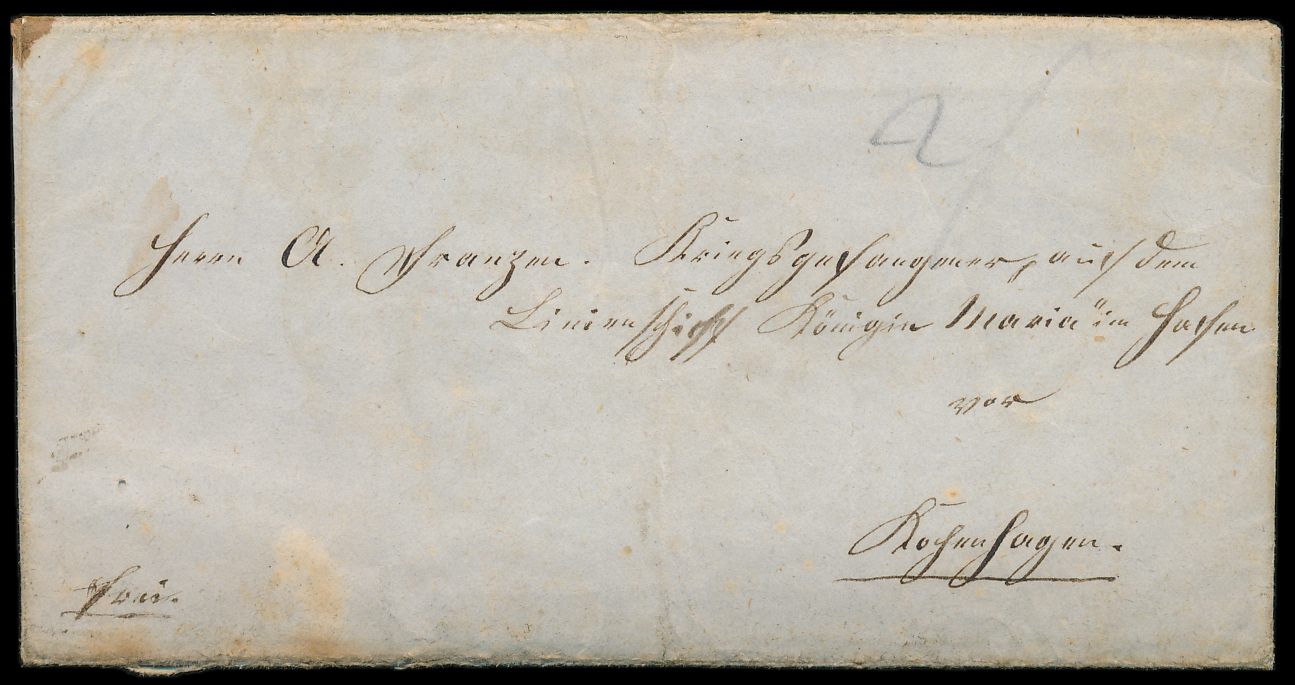 2/
Herrn A. Franzen. Kriegsgefangener, auf dem
Linienschiff Königin Maria" im Hafen
vor
Kopenhagen.
Frei.